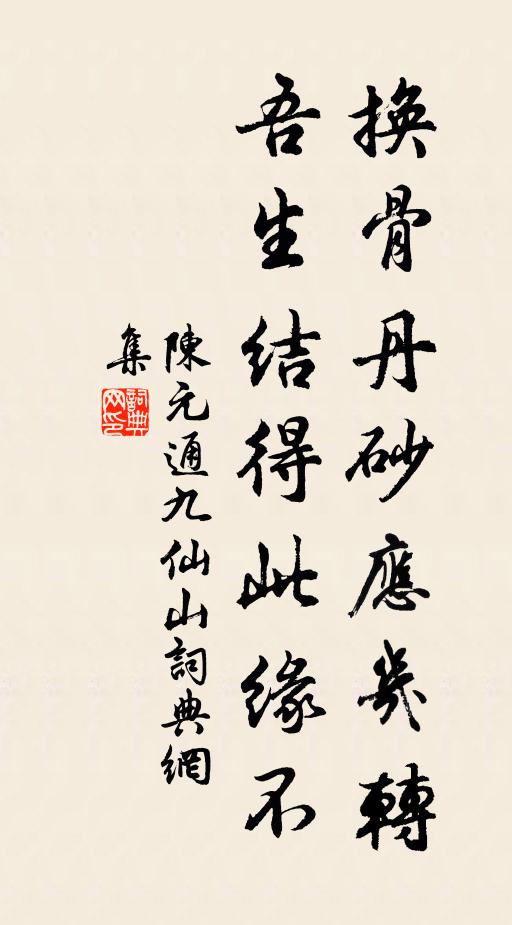 換骨丹砂應幾轉
吾生結得此緣不
陳元通九仙山詞典網
集
詞典網印